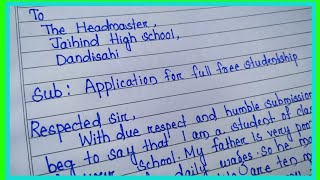 To
The Headmaster,
Jaihind High school,
Dandisahi
Sub: Application for full free studentship
Respected sir,
With due respect and humble submission
beg to say that I am a student of clas
School. My father is very poor
daily wages. So he
are ten